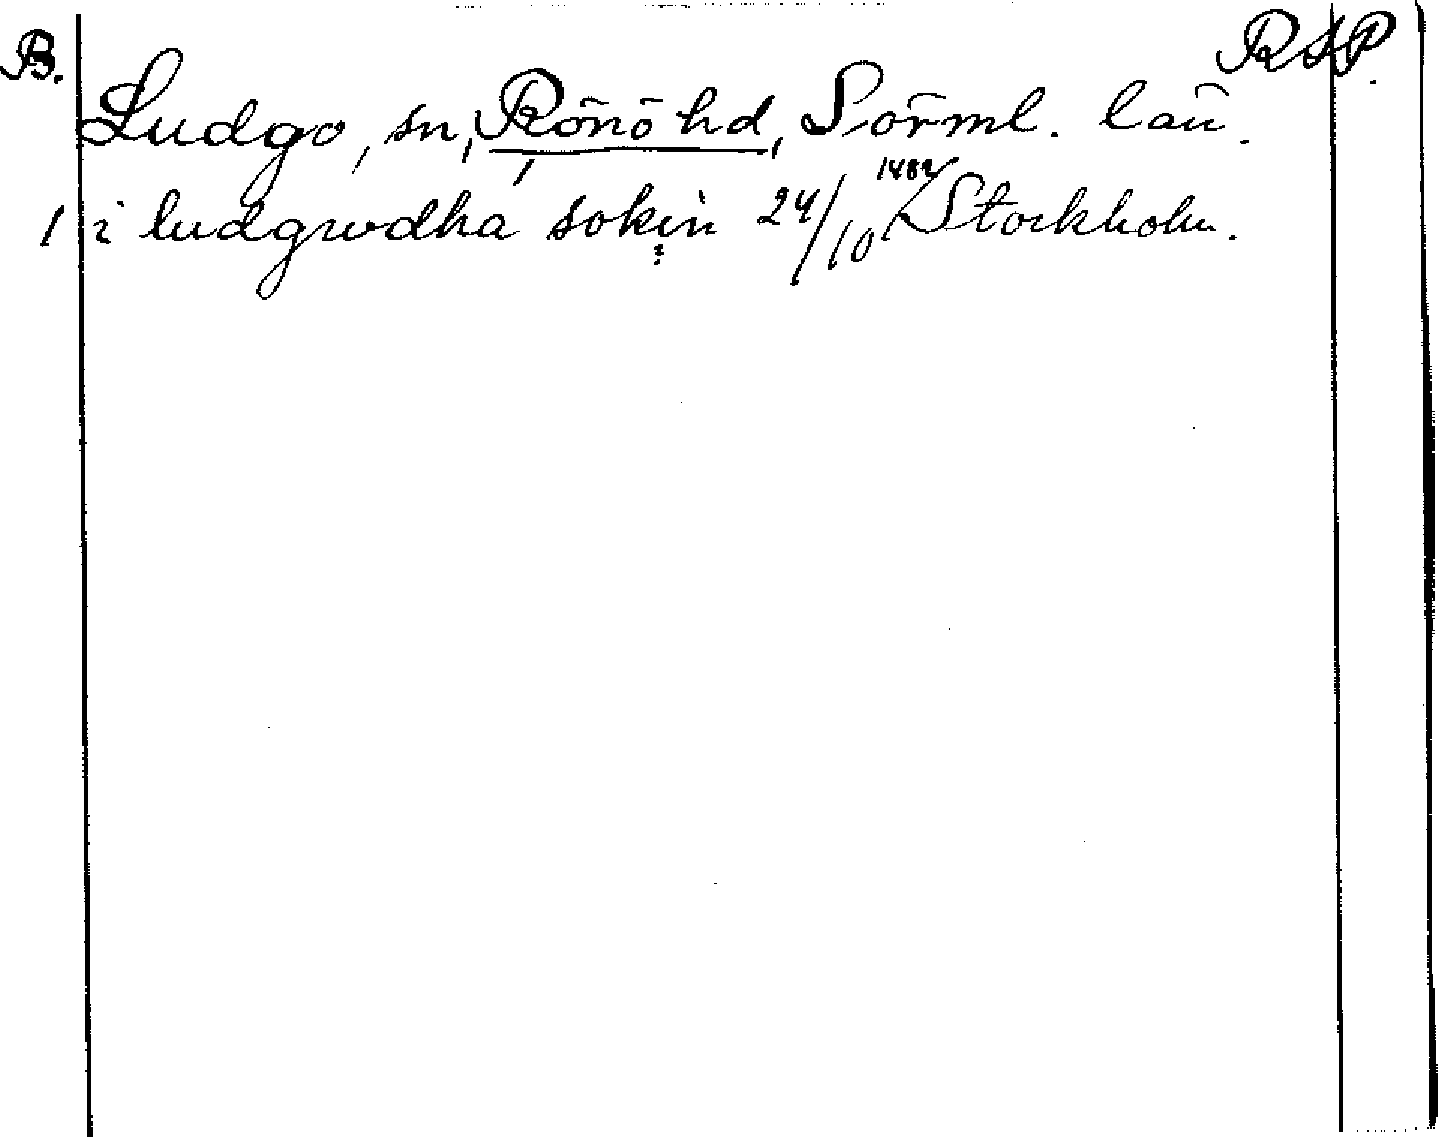 B. RSP.
Ludgo, sn, Rönö hd, Sörml. län.
1 i ludgwdha sokin 24/10 1482 Stockholm.